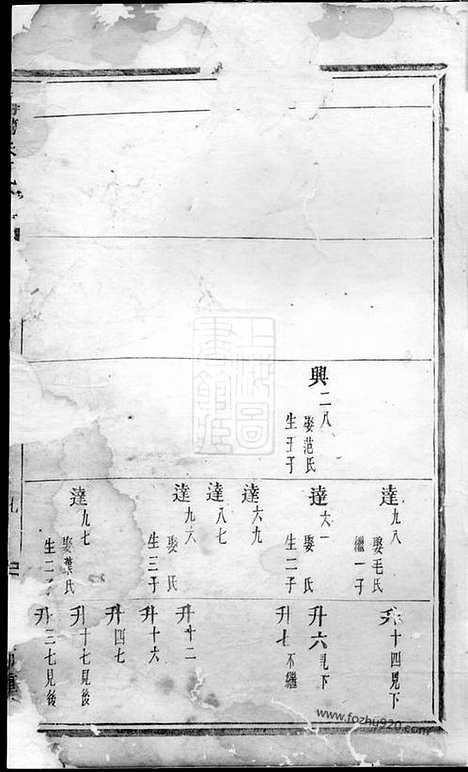 興二八
娶范氏
達九八
娶毛氏
繼一子
達六一
娶 氏
生二子
達六九
達八七
達九六
娶 氏
生三子
達九七
娶葉氏
升十四見下
升六見下
升七 不繼
升十二
升十六
升四七
升十七見後
升三七見後
www.fozhu920.com